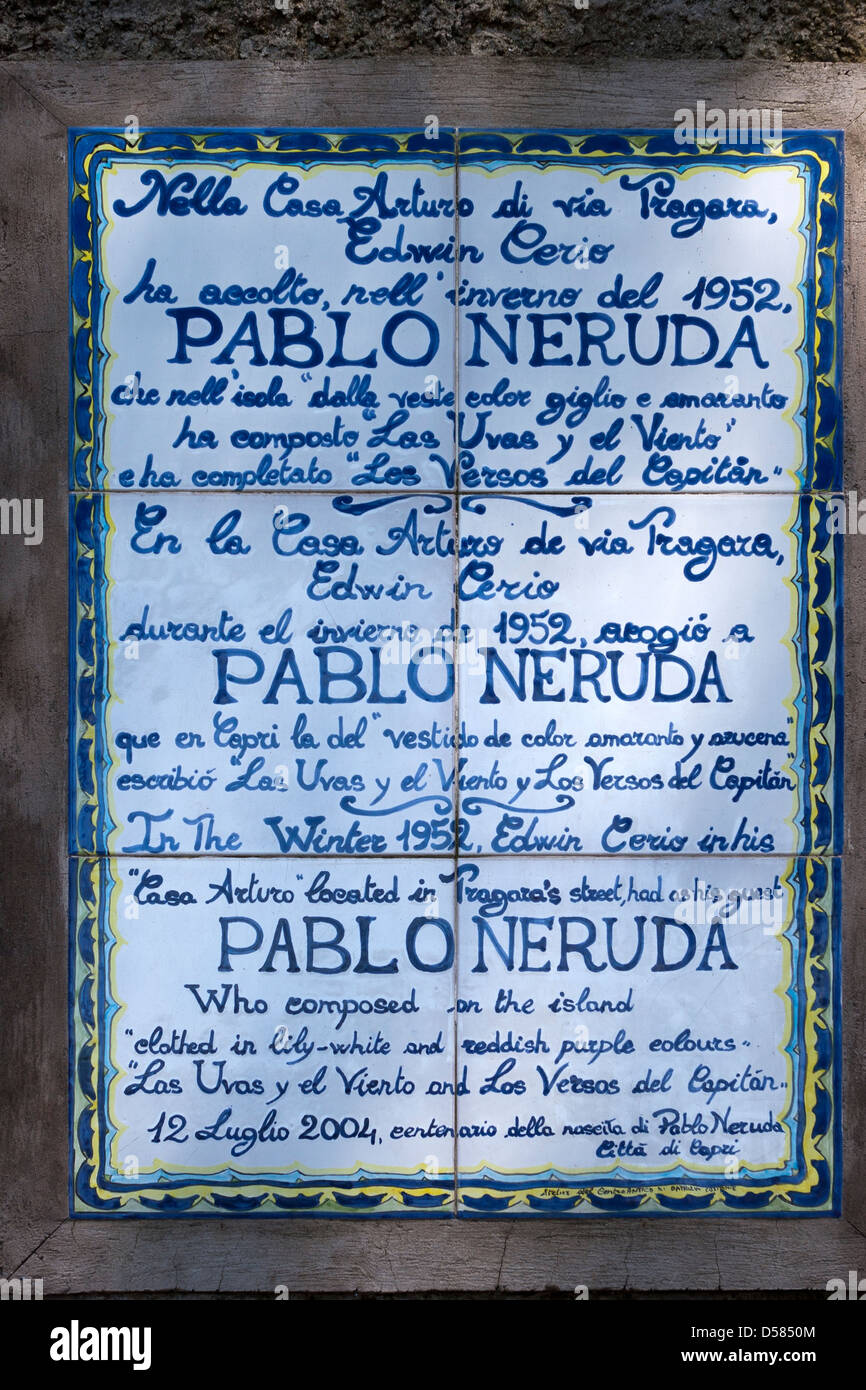 Nella Casa Arturo di via Tragara,
Edwin Cerio
ha accolto, nell'inverno del 1952,
PABLO NERUDA
che nell'isola "dalla veste color giglio e amaranto
ha composto "Las Uvas y el Viento"
e ha completato "Los Versos del Capitán"
En la Casa Arturo de via Tragara,
Edwin Cerio
durante el invierno de 1952, acogió a
PABLO NERUDA
que en Capri la del "vestido de color amaranto y azucena"
escribió "Las Uvas y el Viento y Los Versos del Capitán"
In The Winter 1952, Edwin Cerio in his
"Casa Arturo" located in Tragara's street, had as his guest
PABLO NERUDA
Who composed on the island
"clothed in lily-white and reddish purple colours"
"Las Uvas y el Viento and Los Versos del Capitán"
12 Luglio 2004, centenario della nascita di Pablo Neruda
Città di Capri
Atelier del Centro Antico di
alamy
Image ID: D5850M
www.alamy.com